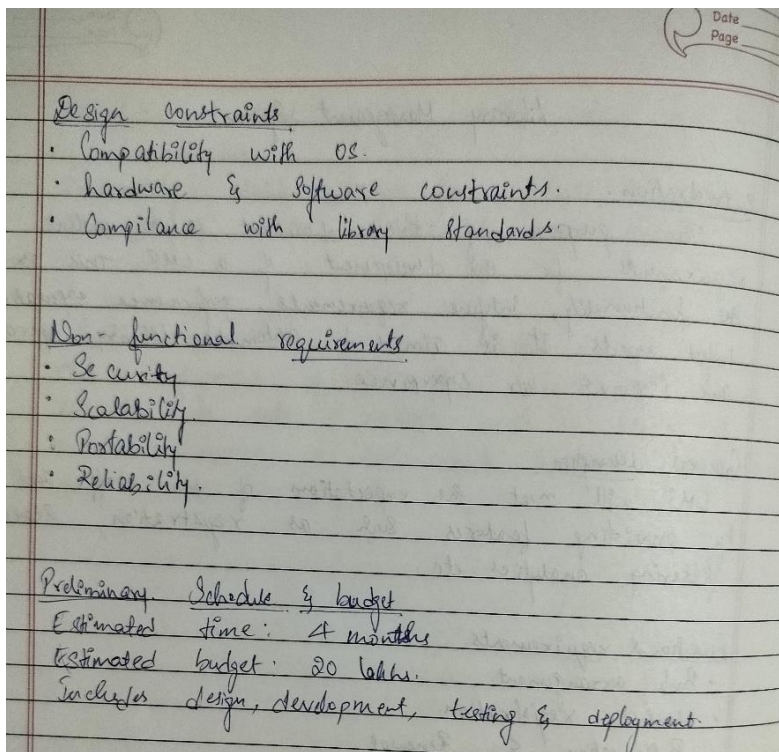 Date
Page
Design constraints
• Compatibility with OS.
• hardware & Software constraints.
• Compilance with library standards.
Non-functional requirements
• Security
• Scalability
• Portability
• Reliability.
Preliminary Schedule & budget
Estimated time: 4 months
Estimated budget: 20 lakhs.
Includes design, development, testing & deployment.